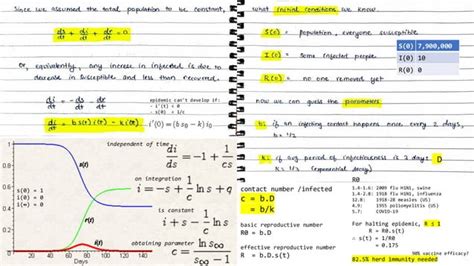 Since we assumed the total population to be constant,
ds/dt + di/dt + dr/dt = 0
or, equivalently, any increase in infected is due to
decrease in susceptible and less than recovered.
di/dt = -ds/dt - dr/dt
epidemic can't develop if:
- i'(t) < 0
- s(0) < 1/c
di/dt = b s(t) i(t) - k i(t)
i'(0) = (b s0 - k) i0
independent of time,
di/ds = -1 + 1/cs
on integration
i = -s + 1/c ln s + q
is constant
i + s - 1/c ln s = q
obtaining parameter
1
0.8
0.6
0.4
0.2
0
20
40
60
80
100
120
140
Days
s(0) = 1
i(0) = 0
i(∞) = 0
s(t)
r(t)
what initial conditions we know.
S(0) = population, everyone susceptible
I(0) = some infected people
R(0) = no one removed yet
S(0) 7,900,000
I(0) 10
R(0) 0
now we can guess the parameters
b: if an infecting contact happens once every 2 days,
b = 1/2
k: if avg period of infectiousness is 3 days D
k = 1/3
contact number /infected
c = b.D
= b/k
basic reproductive number
R0 = b.D
effective reproductive number
R = b.D.s(t)
R0
1.4-1.6: 2009 flu H1N1, swine
1.4-2.8: 1918 flu H1N1, influenza
12-18: measles (US)
4.9: 1955 poliomyelitis (US)
5.7: COVID-19
For halting epidemic, R ≤ 1
∴ s(t) = 1/R0
= 0.175
82.5% herd immunity needed
vaccine efficacy